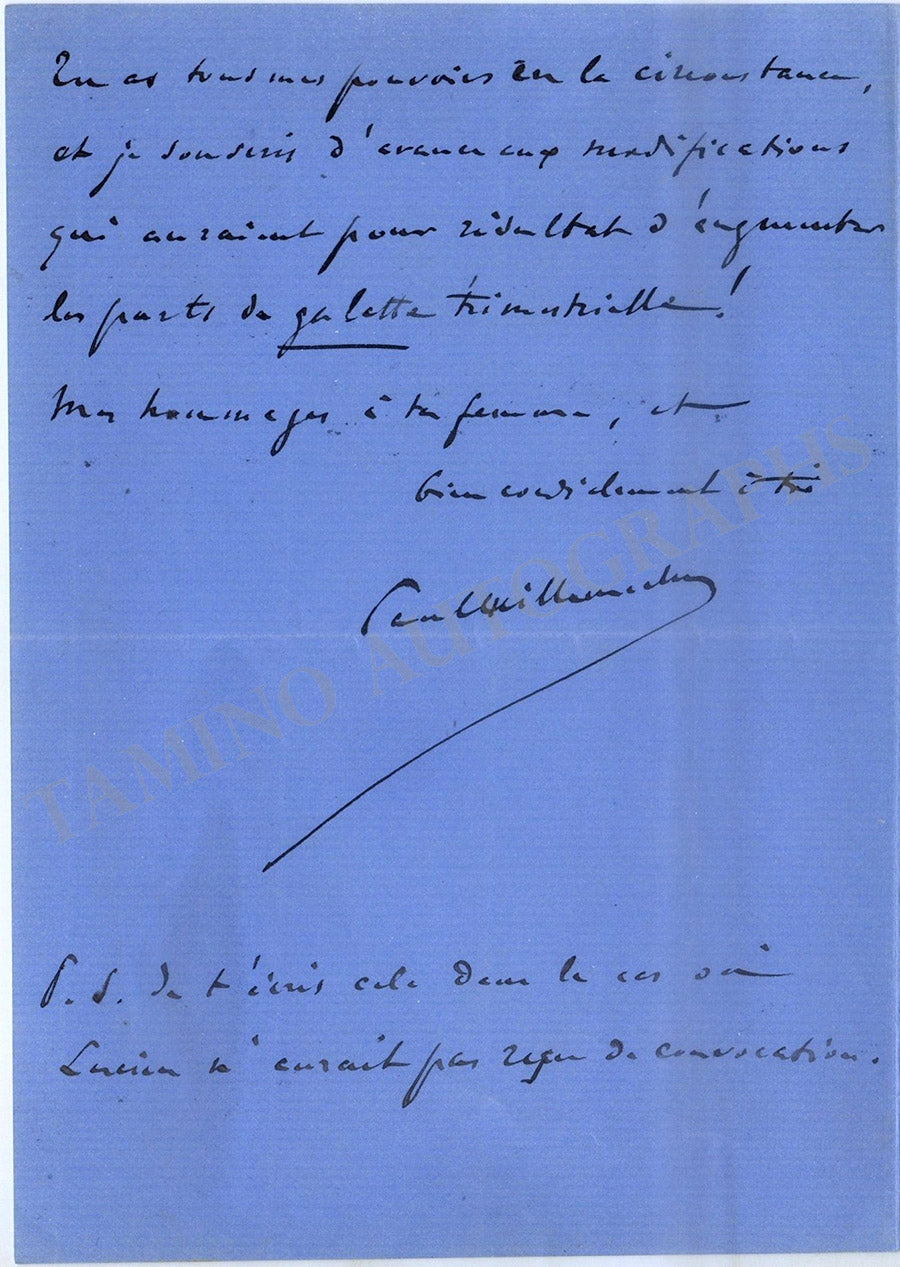 Tu as tous mes pouvoirs en la circonstance,
et je souscris d'avance aux modifications
qui auraient pour résultat d'augmenter
les parts de galette trimestrielle !
Mes hommages à ta femme, et
bien cordialement à toi
Paul Hillemacher
P. S. Je t'écris cela dans le cas où
Lucien n'aurait pas reçu de convocation.
TAMINO AUTOGRAPHS